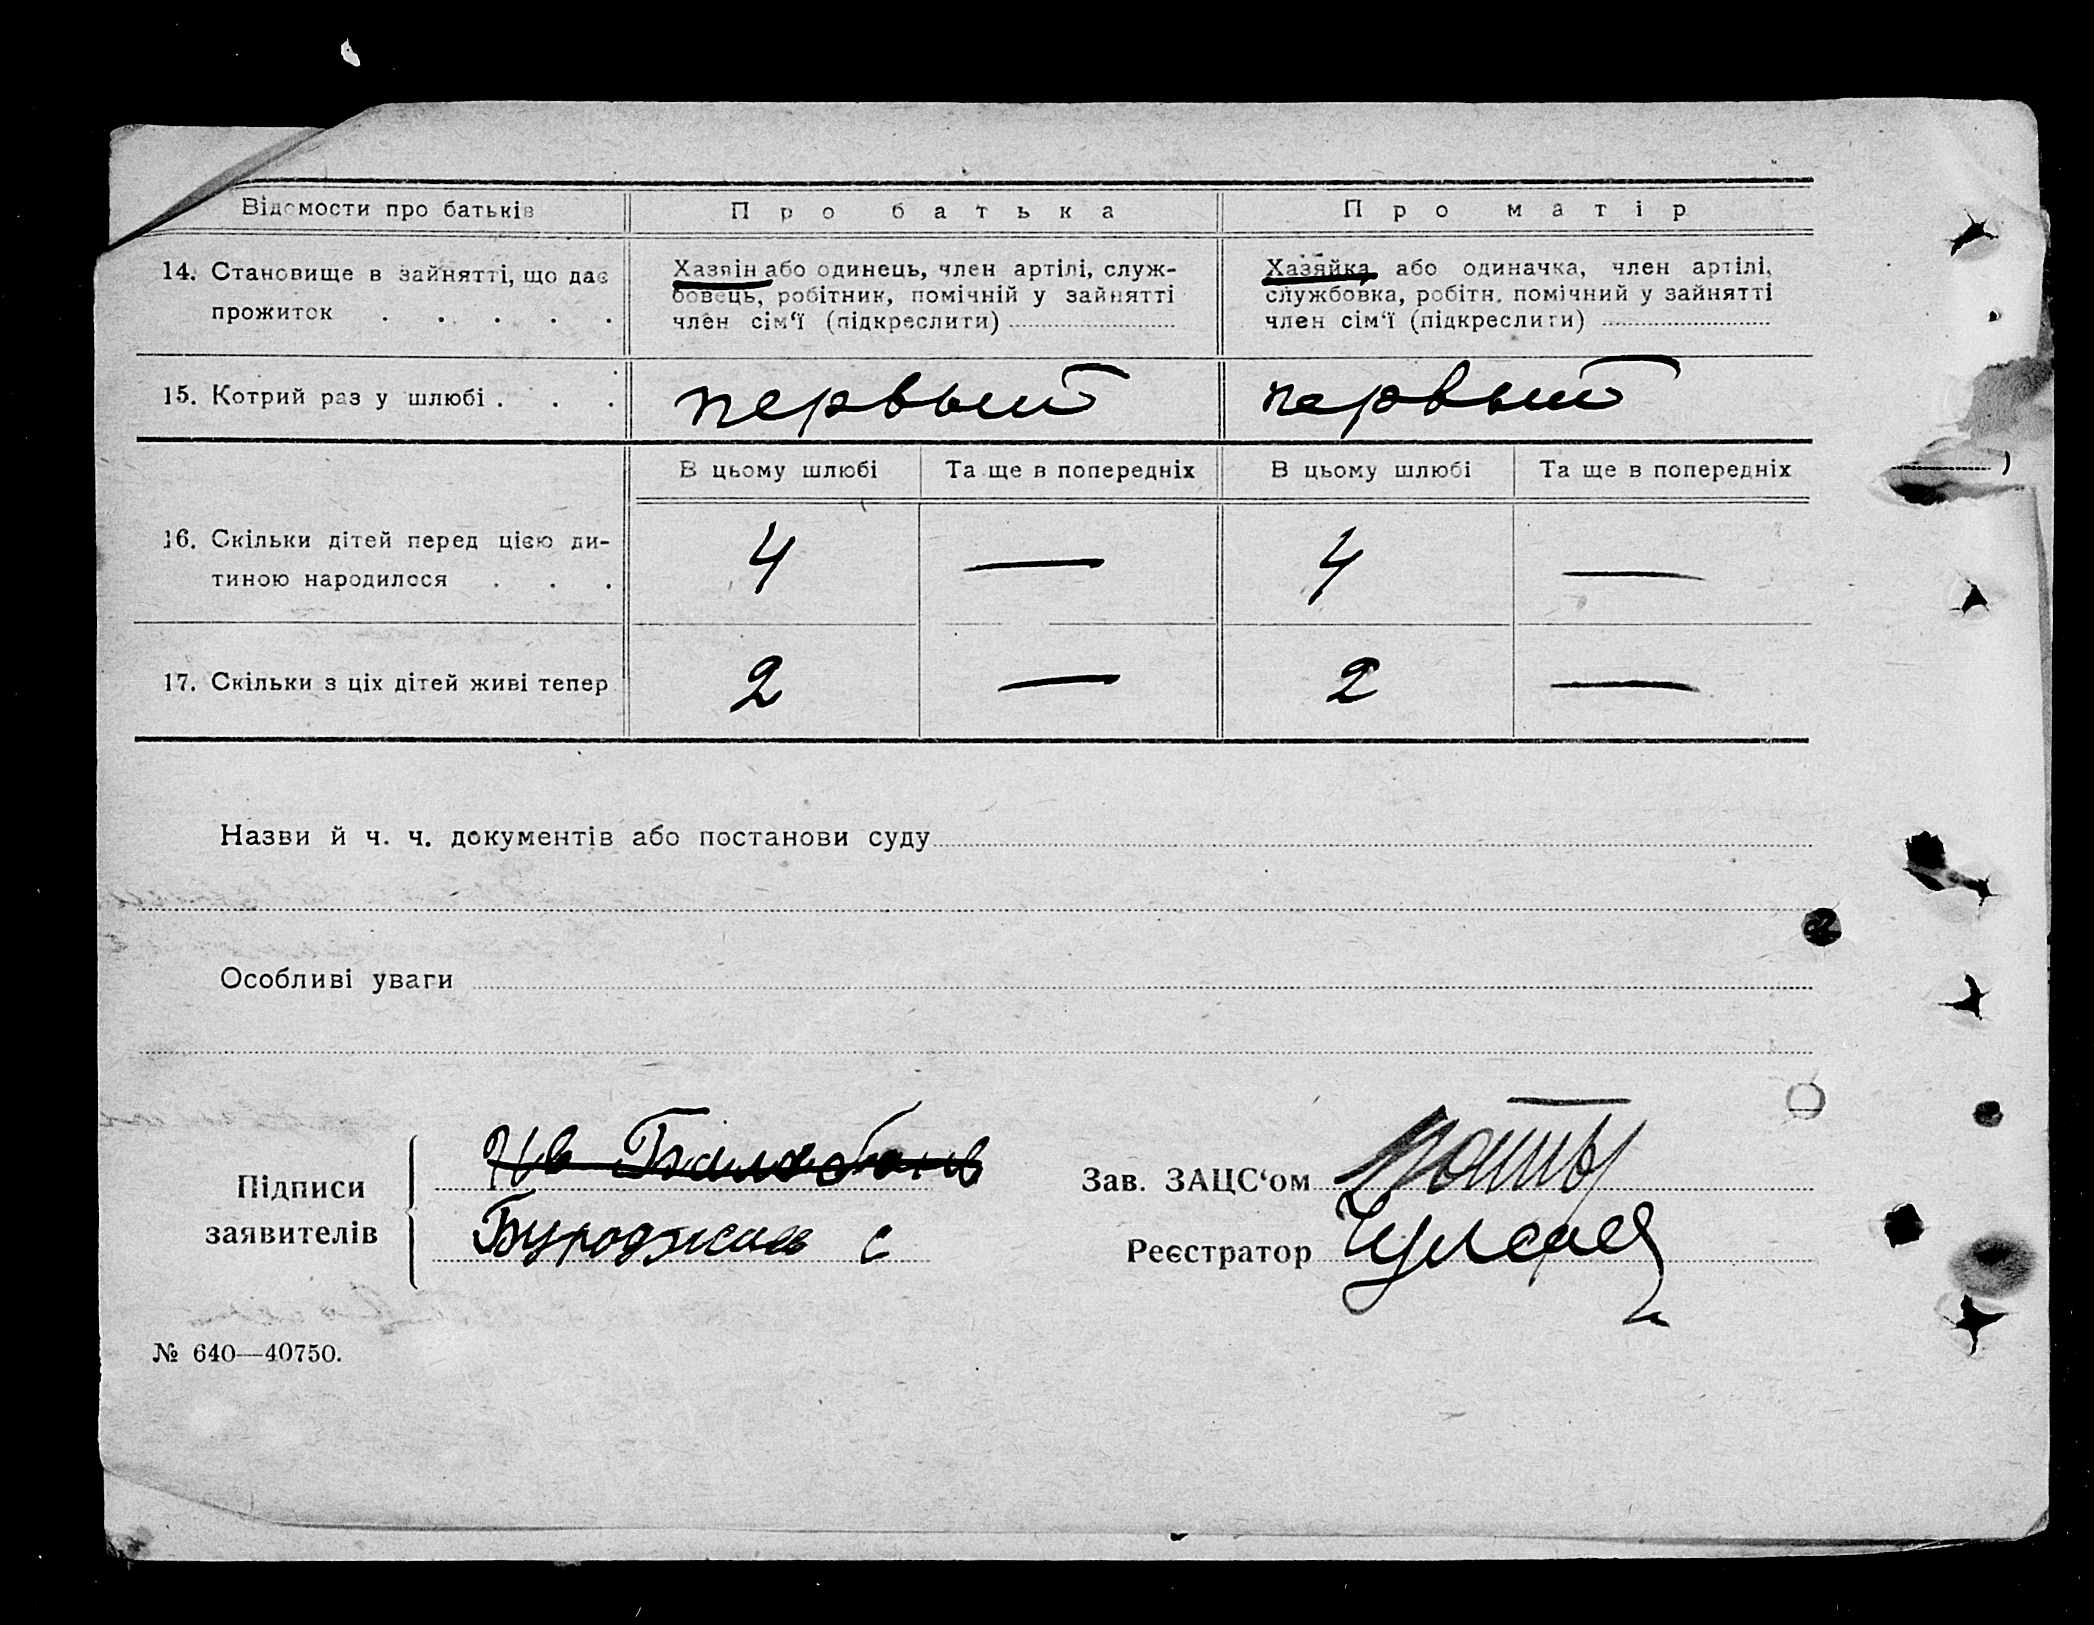 Відомости про батьків
Про батька
Про матір
14. Становище в зайнятті, що дає
прожиток . . . . .
Хазяїн або одинець, член артілі, служ-
бовець, робітник, помічній у зайнятті
член сім‘ї (підкреслити)
Хазяйка або одиначка, член артілі,
службовка, робітн. помічний у зайнятті
член сім‘ї (підкреслити)
15. Котрий раз у шлюбі . . .
первый
первый
В цьому шлюбі
Та ще в попередніх
В цьому шлюбі
Та ще в попередніх
16. Скільки дітей перед цією ди-
тиною народилося . . .
4
—
4
—
17. Скільки з ціх дітей живі тепер
2
—
2
—
Назви й ч. ч. документів або постанови суду
Особливі уваги
Підписи
заявителів
Зав. ЗАЦС‘ом
Реєстратор
№ 640—40750.